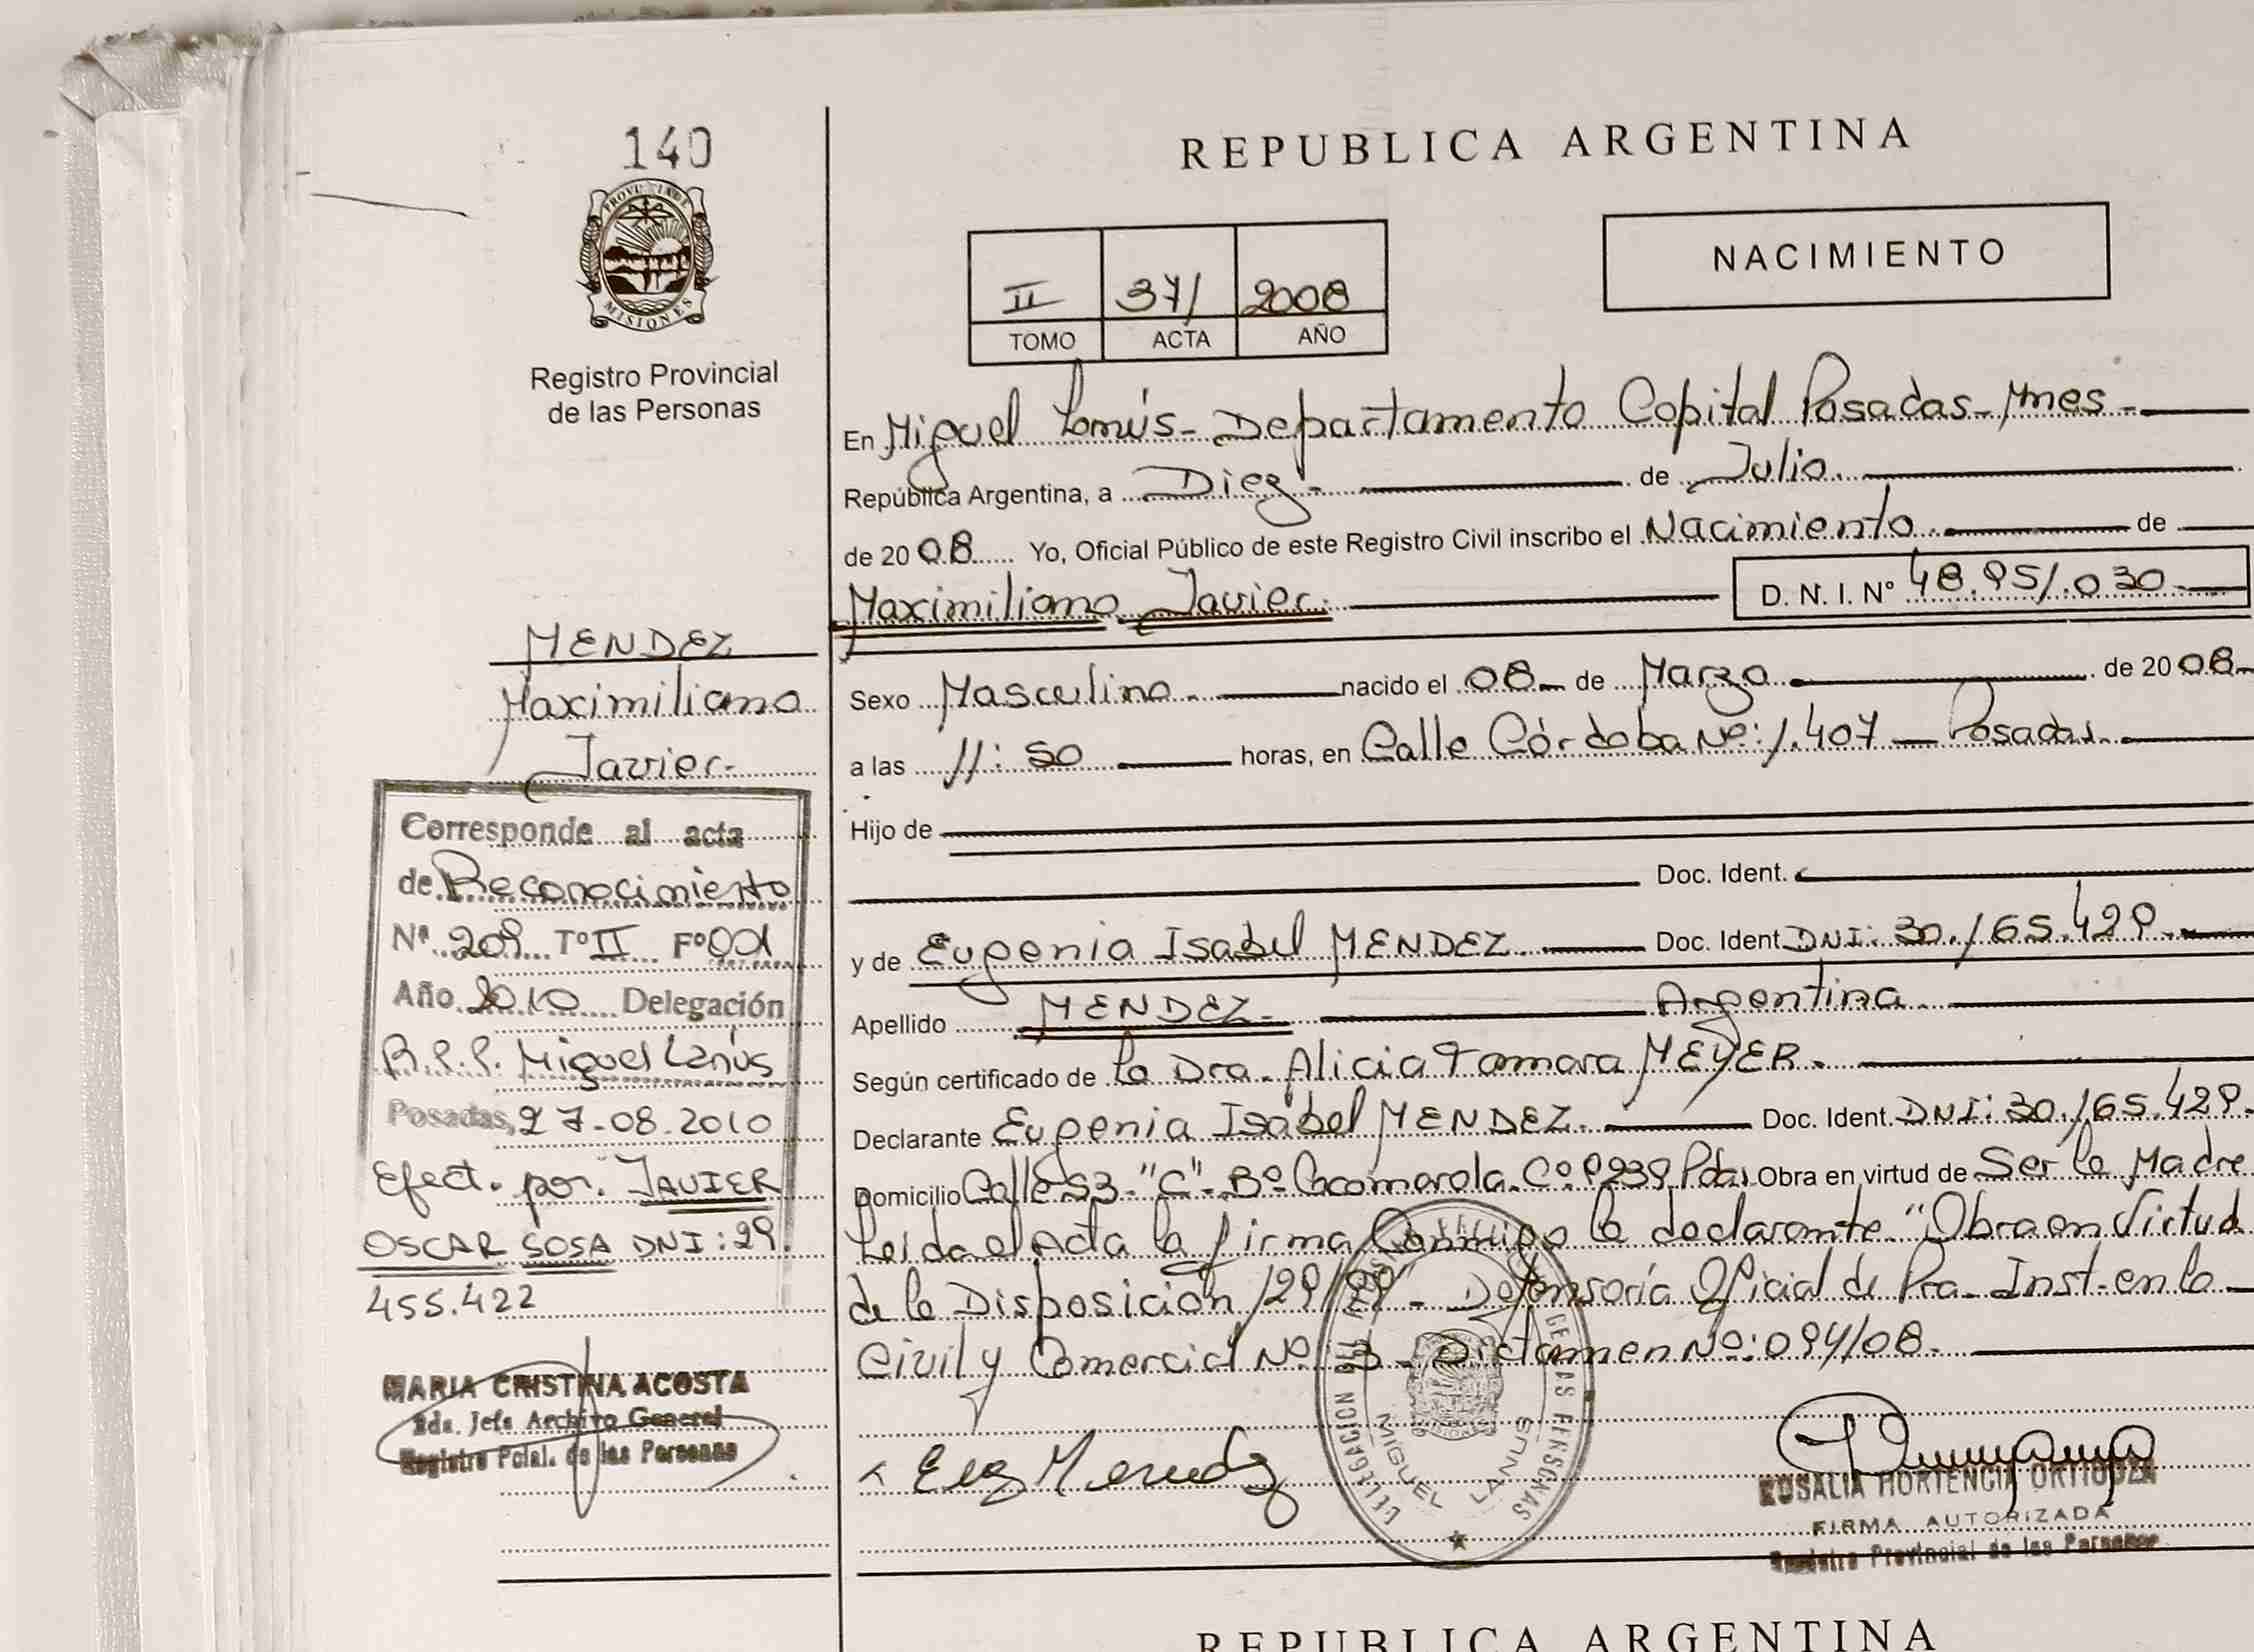 140
PROVINCIA DE
MISIONES
Registro Provincial
de las Personas
MENDEZ
Maximiliano
Javier.-
Corresponde al acta
de Reconocimiento
Nº 209 Tº II Fº 001
Año 2010 Delegación
R.P.P. Miguel Lanús
Posadas, 27-08-2010
Efect. por: JAVIER
OSCAR SOSA DNI: 29.
455.422
MARIA CRISTINA ACOSTA
Jefe Archivo General
Registro Pcial. de las Personas
REPUBLICA ARGENTINA
NACIMIENTO
II 371 2008
TOMO ACTA AÑO
En Miguel Lanús - Departamento Capital Posadas - Mnes -
República Argentina, a Diez - de Julio.
de 2008 Yo, Oficial Público de este Registro Civil inscribo el Nacimiento de
Maximiliano Javier. D. N. I. Nº 48.951.030.-
Sexo Masculino. nacido el 08 - de Marzo. de 2008 -
a las 11:50 horas, en Calle Córdoba Nº: 1.407 - Posadas.
Hijo de
Doc. Ident.
y de Eugenia Isabel MENDEZ. Doc. Ident. DNI: 30.165.429.-
Apellido MENDEZ. Argentina.
Según certificado de la Dra. Alicia Tamara MEYER.
Declarante Eugenia Isabel MENDEZ. Doc. Ident. DNI: 30.165.429.
Domicilio Calle 53 - "C" - Bº Cocomarola - Cº 9239 Pdas Obra en virtud de Ser la Madre
Leída el Acta la firma Conmigo la declarante "Obra en Virtud
de la Disposición 129/99" - Defensoría Oficial de Pra. Inst. en lo
Civil y Comercial Nº: 3 - Dictamen Nº: 094/08.
DELEGACION DEL REGISTRO PROVINCIAL DE LAS PERSONAS
MIGUEL LANUS
Eug Mendez
HORTENCIA ORTIGOZA
FIRMA AUTORIZADA
Registro Provincial de las Personas
REPUBLICA ARGENTINA